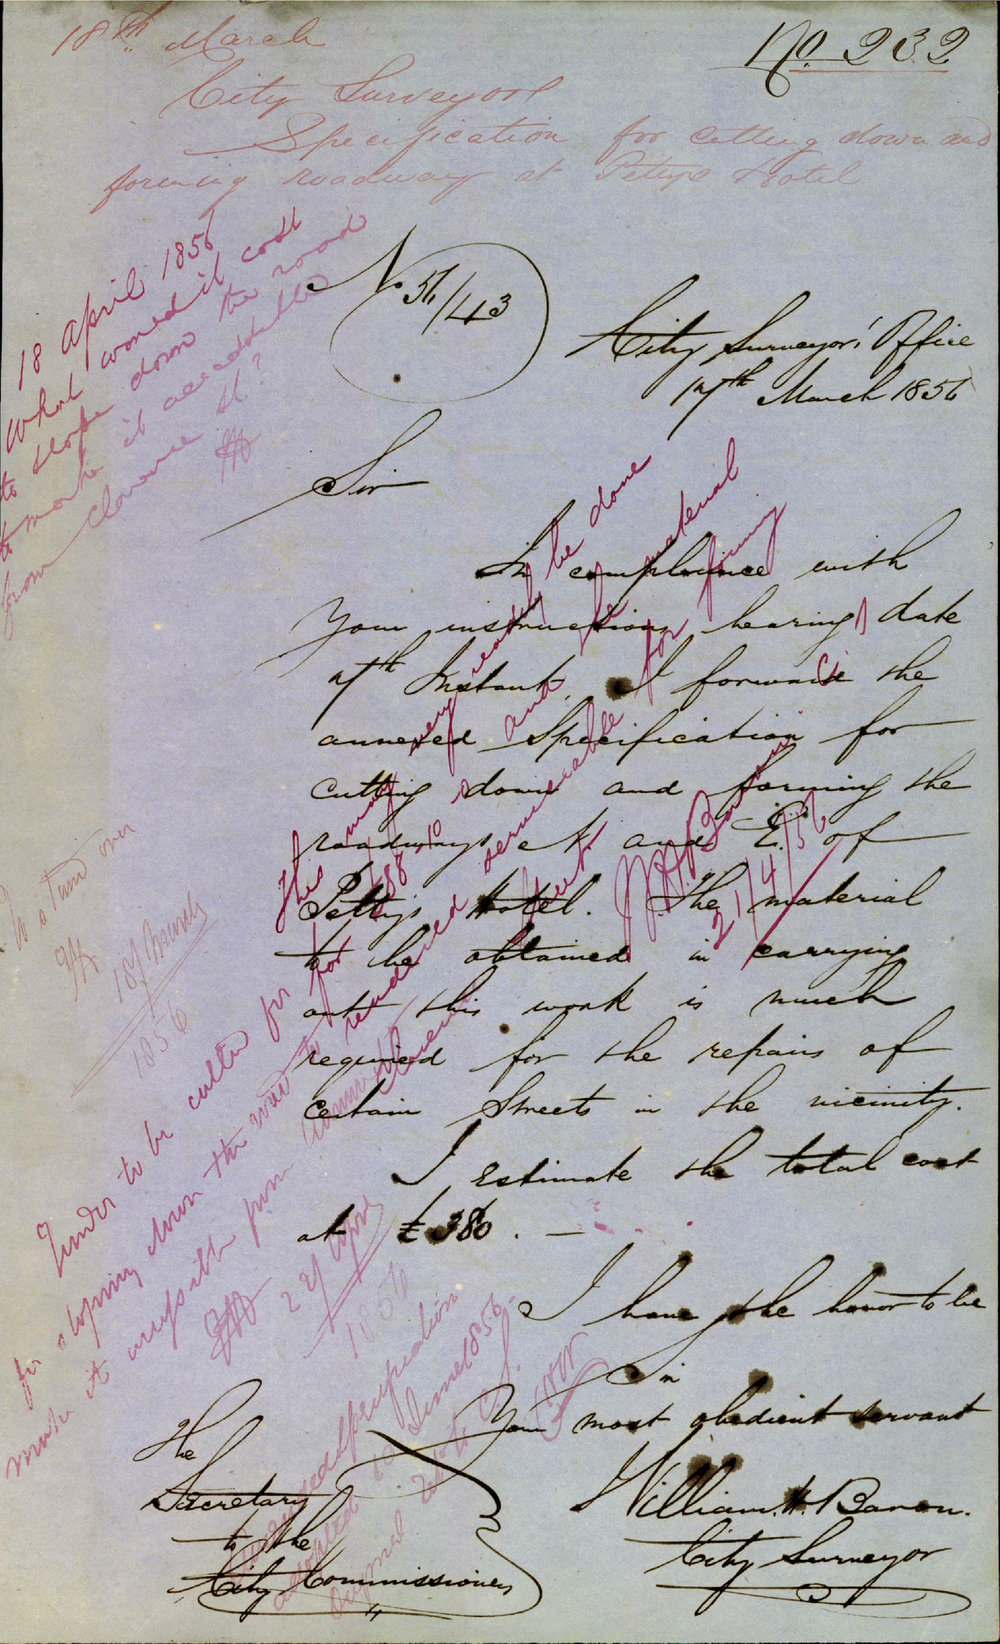 18th March
No. 232
City Surveyor
Specification for cutting down and
forming roadway at Pettys Hotel
18 April 1856
What would it cost
to slope down the road
to make it accessible
from Clarence St?
No 56/43
City Surveyor's Office
17th March 1856
Sir
In compliance with
Your instructions bearing date
7th Instant, I forward the
annexed Specification for
cutting down and forming the
roadways N and E. of
Pettys Hotel. The material
to be obtained in carrying
out this work is much
required for the repairs of
certain Streets in the vicinity.
I Estimate the total cost
at £380. —
This may very readily be done
for £88.10 and the material
rendered serviceable for forming
Kent
21/4/56
18/March
1856
Tender to be called for
for sloping down the road to
make it accessible from Clarence
22 April
1856
Specification
adopted 10 June 1856
I have the honor to be
Sir
Your most obedient servant
William. H. Baron.
City Surveyor
The
Secretary
to the
City Commissioners